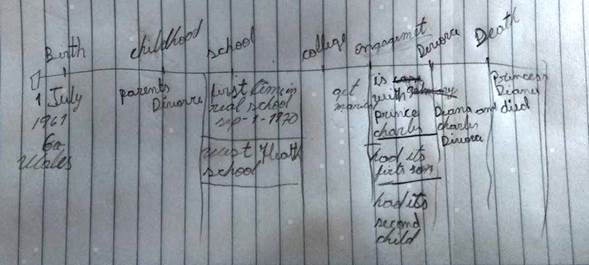 Birth
childhood
school
college
engagemet
Divorce
Death
1 July
1961
Wales
parents
Divorre
first time in
real school
sep-1-1970
west Heath
school
get
married
is
with
prince
charles
had its
firts son
had its
second
child
Diana and
charles
Divorce
Princess
Diana
died